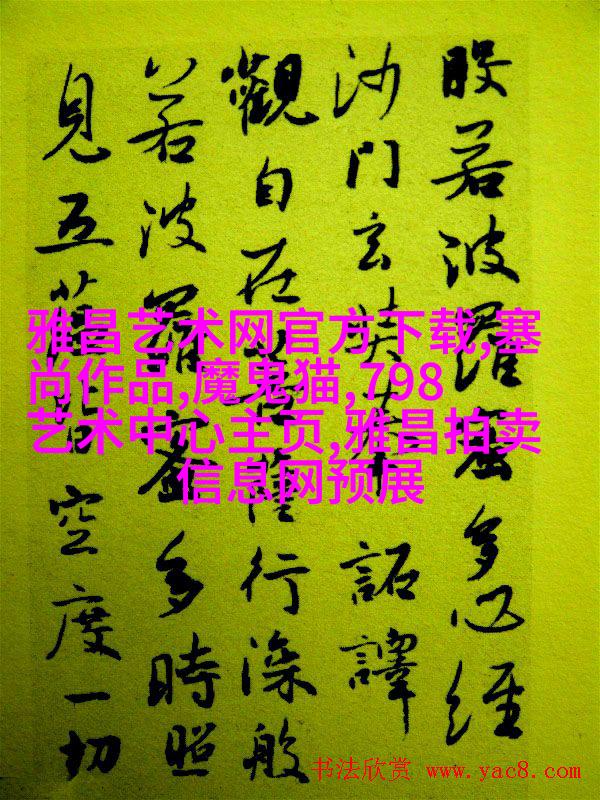 般若波羅蜜多心經
沙門玄奘奉 詔譯
觀自在菩薩行深般
若波羅蜜多時照
見五蘊皆空度一切
雅昌艺术网官方下载,塞
尚作品,魔鬼猫,798
艺术中心主页,雅昌拍卖
信息网预展
书法欣赏 www.yac8.com